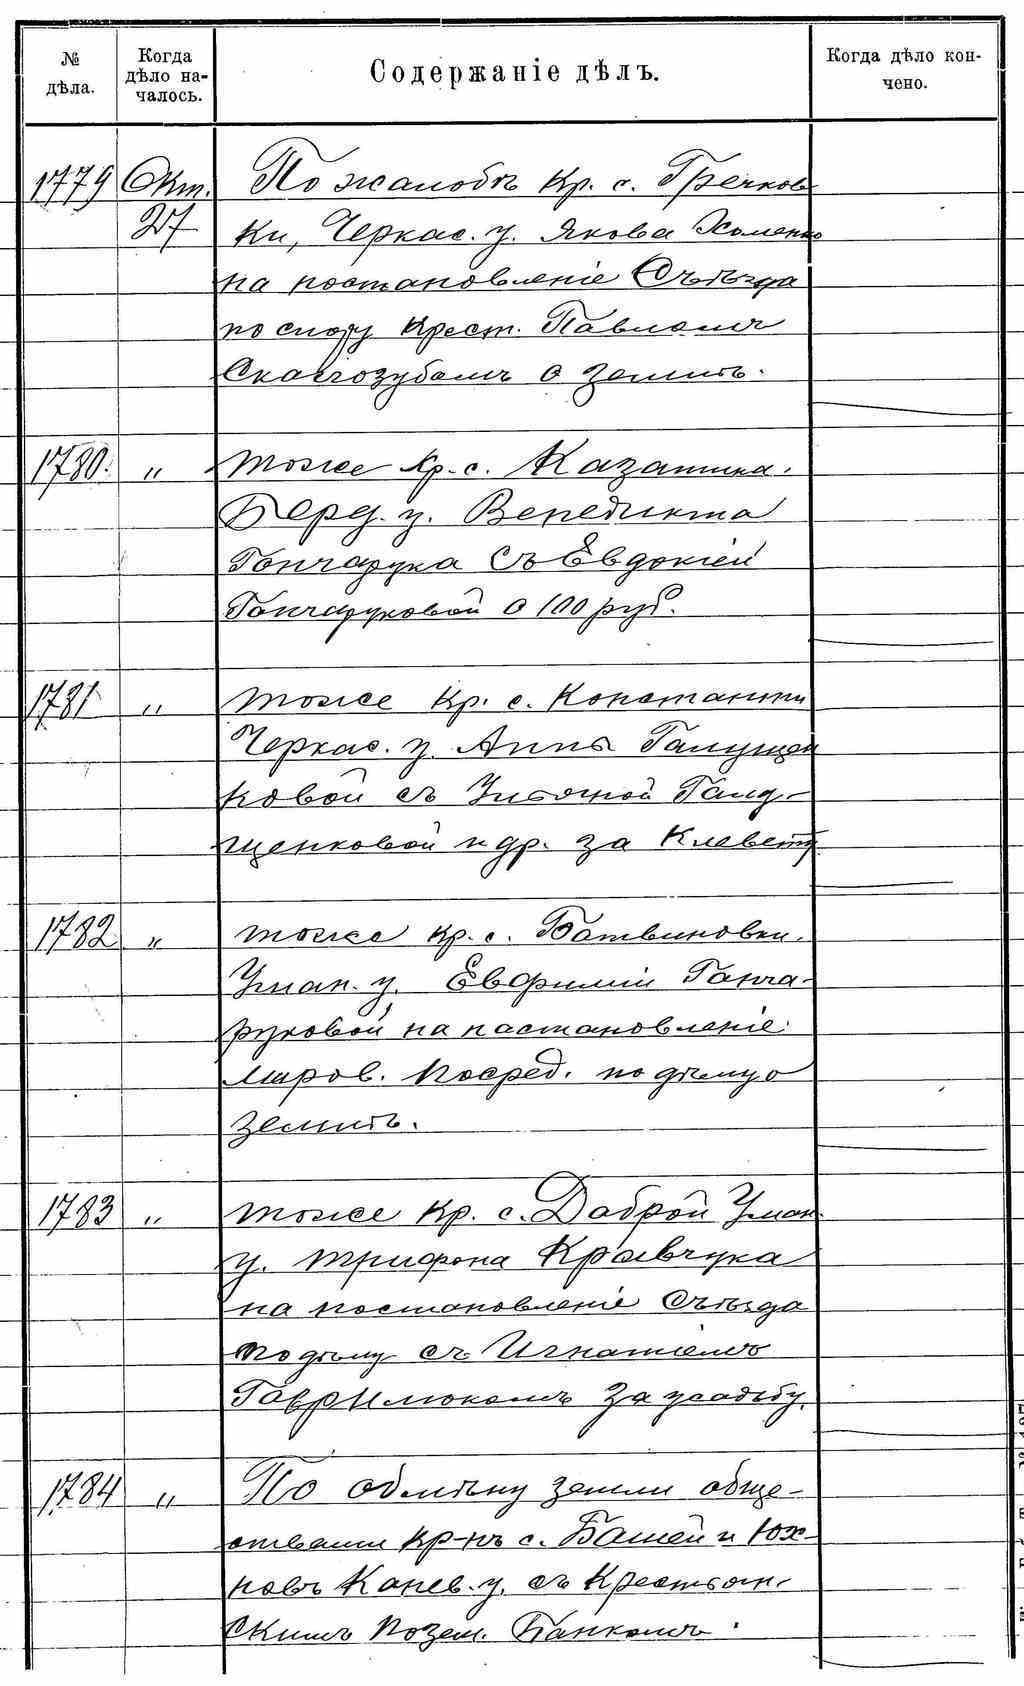 № дѣла.
Когда дѣло началось.
Содержаніе дѣлъ.
Когда дѣло кончено.
1779 Окт. 27
По жалобѣ кр. с. Гречков-
ки, Черкас. у. Якова Хоменко
на постановленіе Съѣзда
по спору крест. Павломъ
Скаłозубомъ о землѣ.
1780. „
тоже кр. с. Казатина.
Берд. у. Венедикта
Гончарука съ Евдокіей
Гончаруковой о 100 руб.
1781 „
тоже кр. с.
Черкас. у. Анны Галущен
ковой съ Галу-
щенковой и др. за клевету
1782 „
тоже кр. с. Ботвиновки.
Уман. у. Евфиміи Гонча-
руковой на постановленіе
миров. посред. по дѣлу о
землѣ.
1783 „
тоже кр. с. Доброй Уман.
у. Трифона Кравчука
на постановленіе Съѣзда
по дѣлу съ Игнатіемъ
Гаврилюкомъ за усадьбу.
1784 „
По обмѣну земли обще-
ствами кр-нъ с. и Юх-
новъ Канев. у. съ Крестьян-
скимъ Позем. Банкомъ.